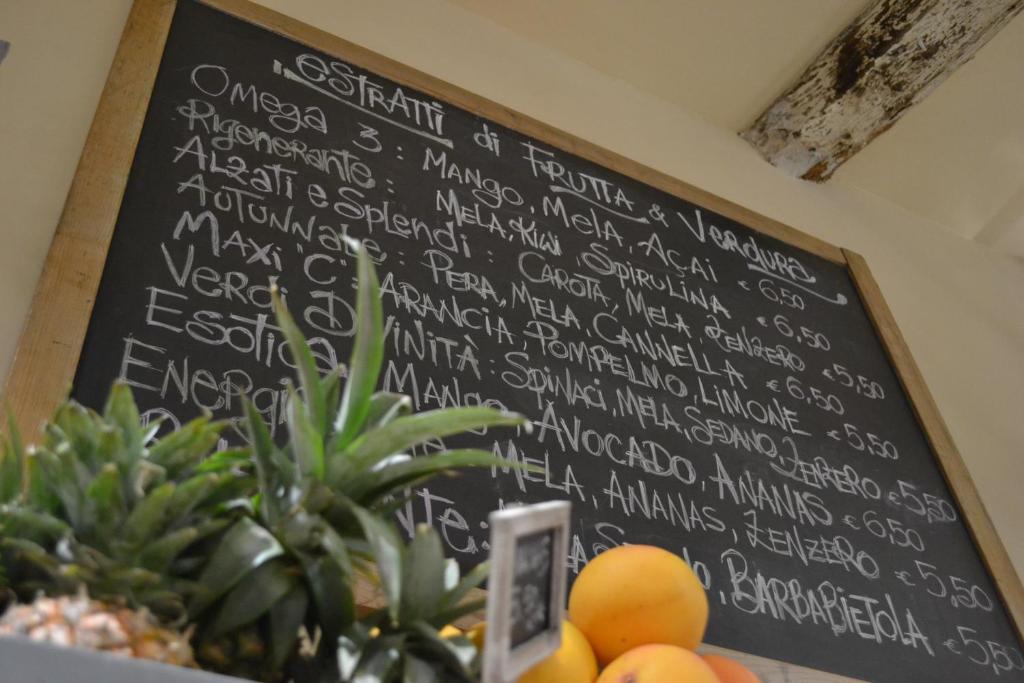 ESTRATTI di FRUTTA & VERDURA
OMEGA 3 : MANGO, MELA, AÇAI € 6,50
RIGENERANTE : MELA, KIWI, SPIRULINA € 6,50
ALZATI e SPLENDI : CAROTA, MELA, ZENZERO € 5,50
AUTUNNALE : PERA, MELA, CANNELLA € 6,50
MAXI "C" : ARANCIA, POMPELMO, LIMONE € 5,50
VERDI DIVINITÀ : SPINACI, MELA, SEDANO, ZENZERO € 5,50
ESOTICO MANGO, AVOCADO, ANANAS € 6,50
ENERGI MELA, ANANAS, ZENZERO € 5,50
NTE : BARBABIETOLA € 5,50